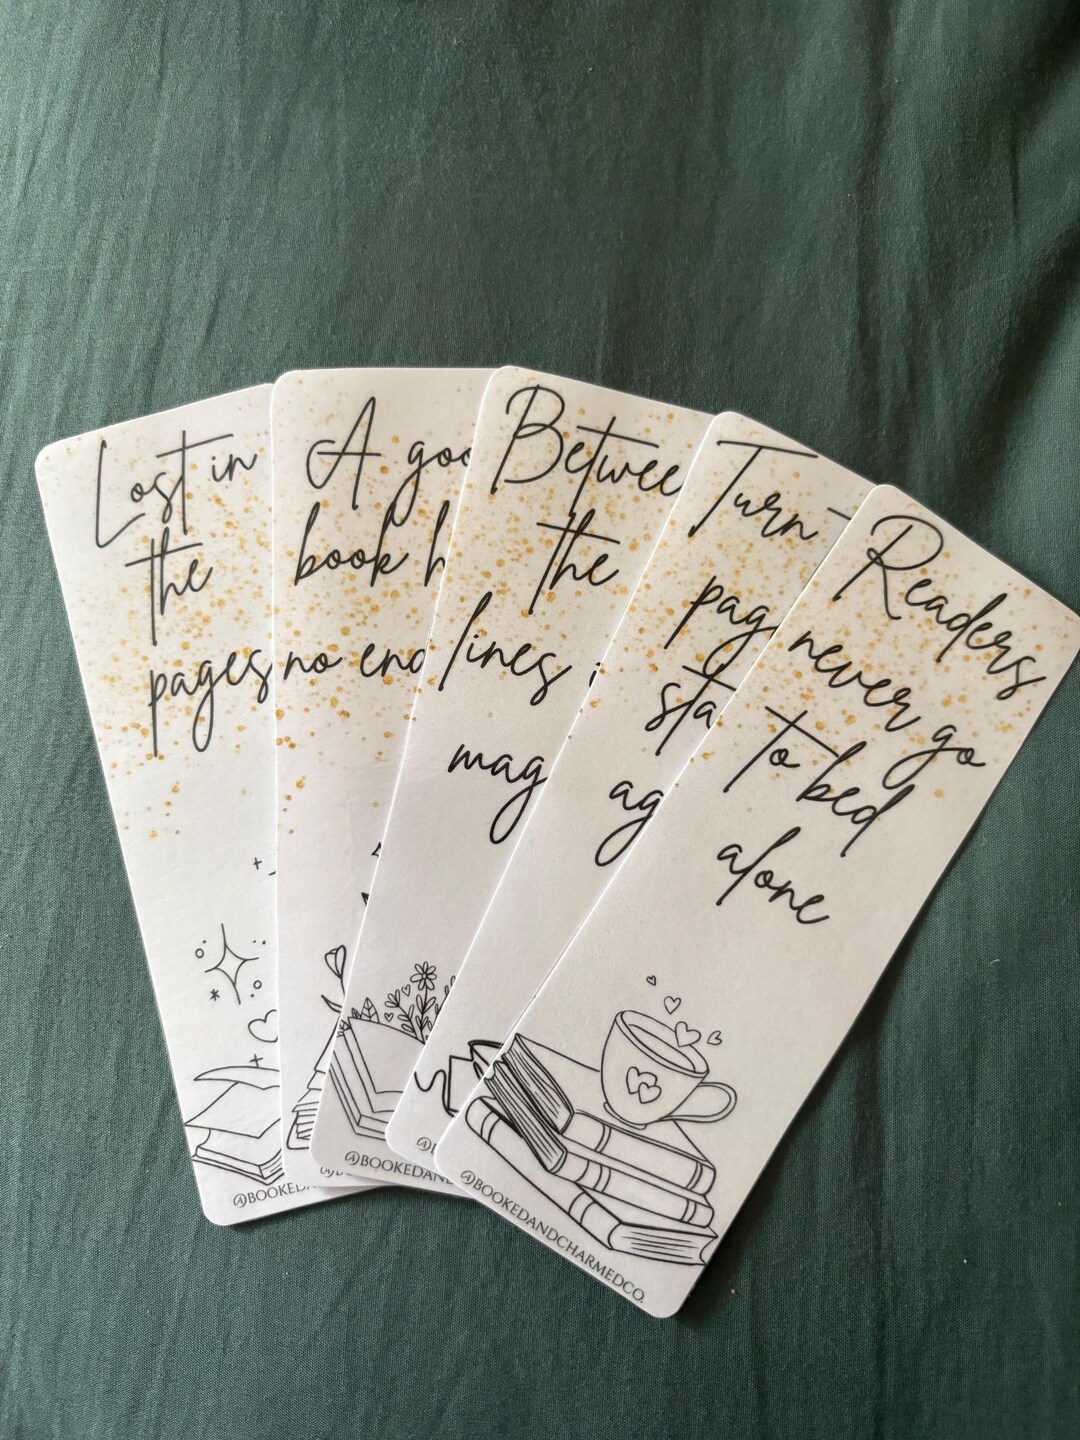 Lost in
the
pages
@BOOKED
A goo
book h
no end
Betwee
the
lines
mag
@BOOKEDAND
Turn
pag
sta
ag
Readers
never go
to bed
alone
@BOOKEDANDCHARMEDCO.